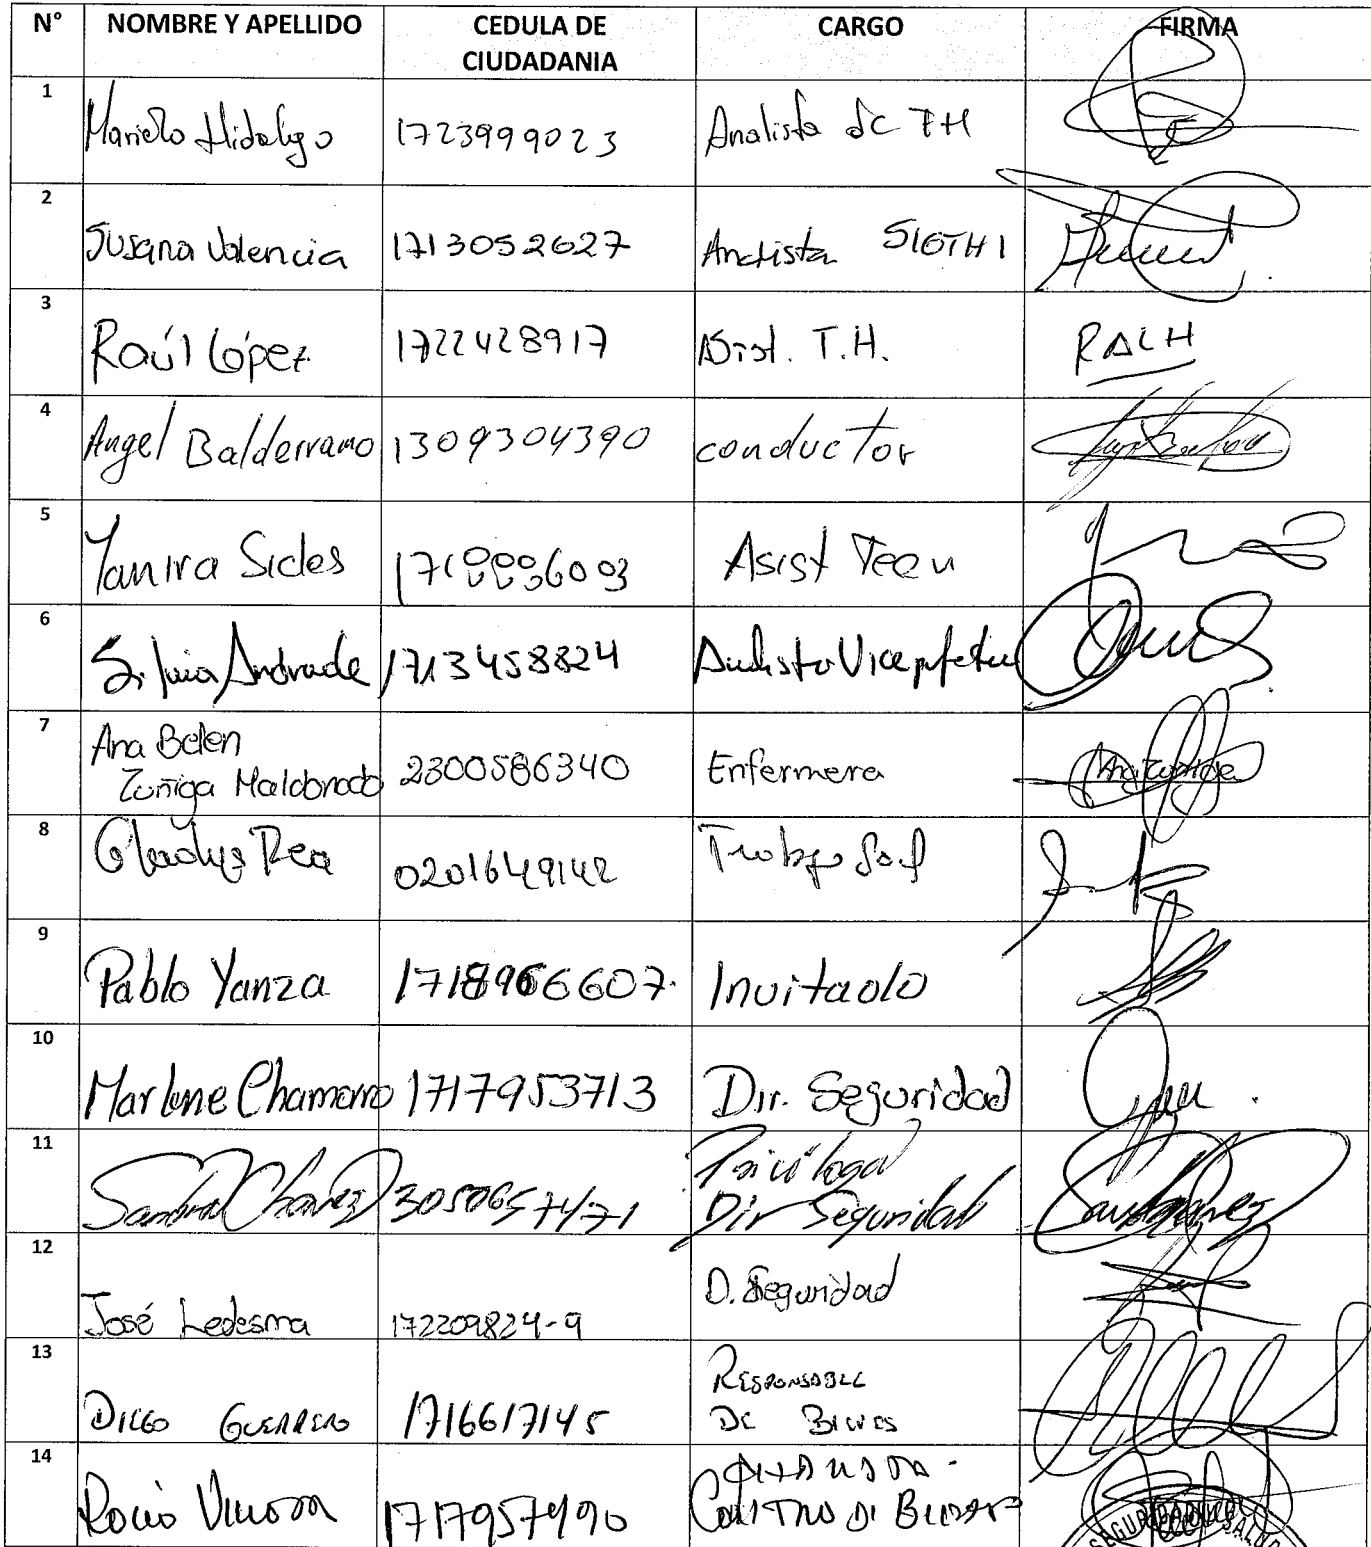 N° NOMBRE Y APELLIDO CEDULA DE CIUDADANIA CARGO FIRMA
1 Hidalgo 1723999023 Analista de TH
2 Susana Valencia 1713052627 Analista
3 Raúl López 1722428917 T.H. RALH
4 Angel Balderramo 1309304390 conductor
5 Yanira Asist
6 Silvia Andrade 1713458824
7 Ana Belen
Zuñiga Maldonado 2300586340 Enfermera
8 Gladys Rea 0201649142
9 Pablo Yanza 1718966607. Invitado
10 Marlene Chamorro 1717953713 Dir. Seguridad
11 Sandra Chavez Psicóloga
Dir Seguridad
12 José Ledesma 172209824-9 D. Seguridad
13 DIEGO GUERRERO 1716617145 RESPONSABLE
DE BIENES
14 Rocio 1717957490